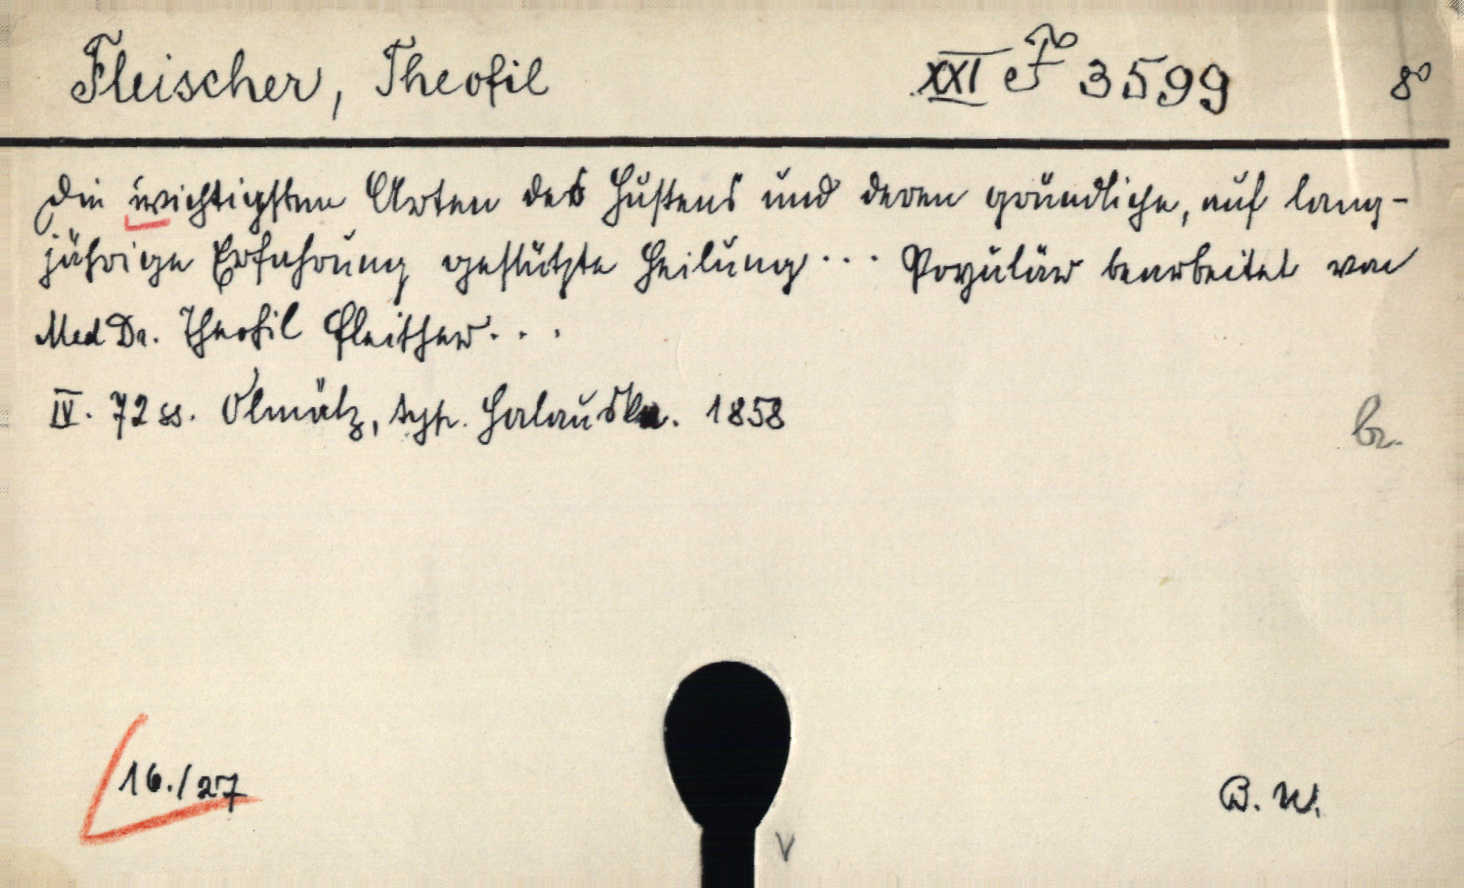 Fleischer, Theofil XXI F 3599 8°
Die wichtigsten Arten des Hustens und deren gründliche, auf lang-
jährige Erfahrung gestützte Heilung... Populär bearbeitet von
Med Dr. Theofil Fleischer...
IV. 72 ss. Olmütz, typ. Halauska. 1858
br.
16./27
B. W.